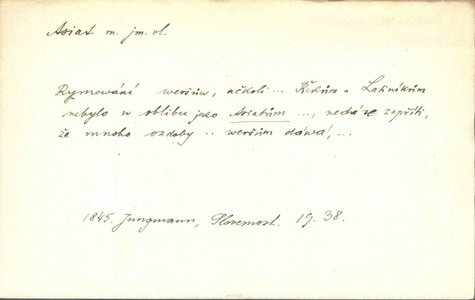 Asiat m. jm. vl.
Rymowání weršůw, ačkoli .. Řekům a Latiníkům
nebylo w oblibu jako Asiatům ..., nedá se zapříti,
že mnoho ozdoby .. weršům dáwá, ...
1845. Jungmann, Slovesnost. 19. 38.